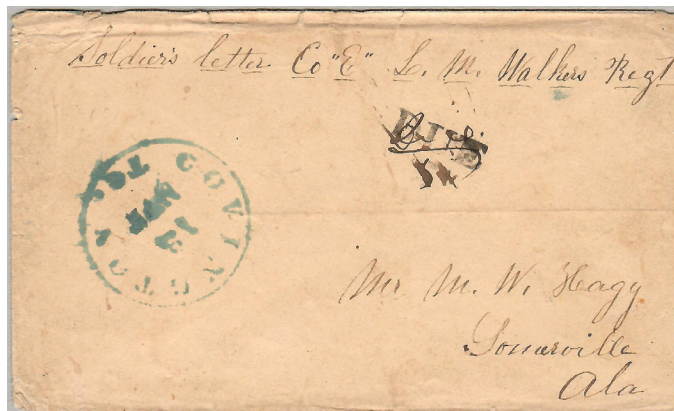 Soldier's letter Co "E" L. M. Walkers Regt
DUE
COVINGTON TE.
Mr M. W. Hagy
Somerville
Ala